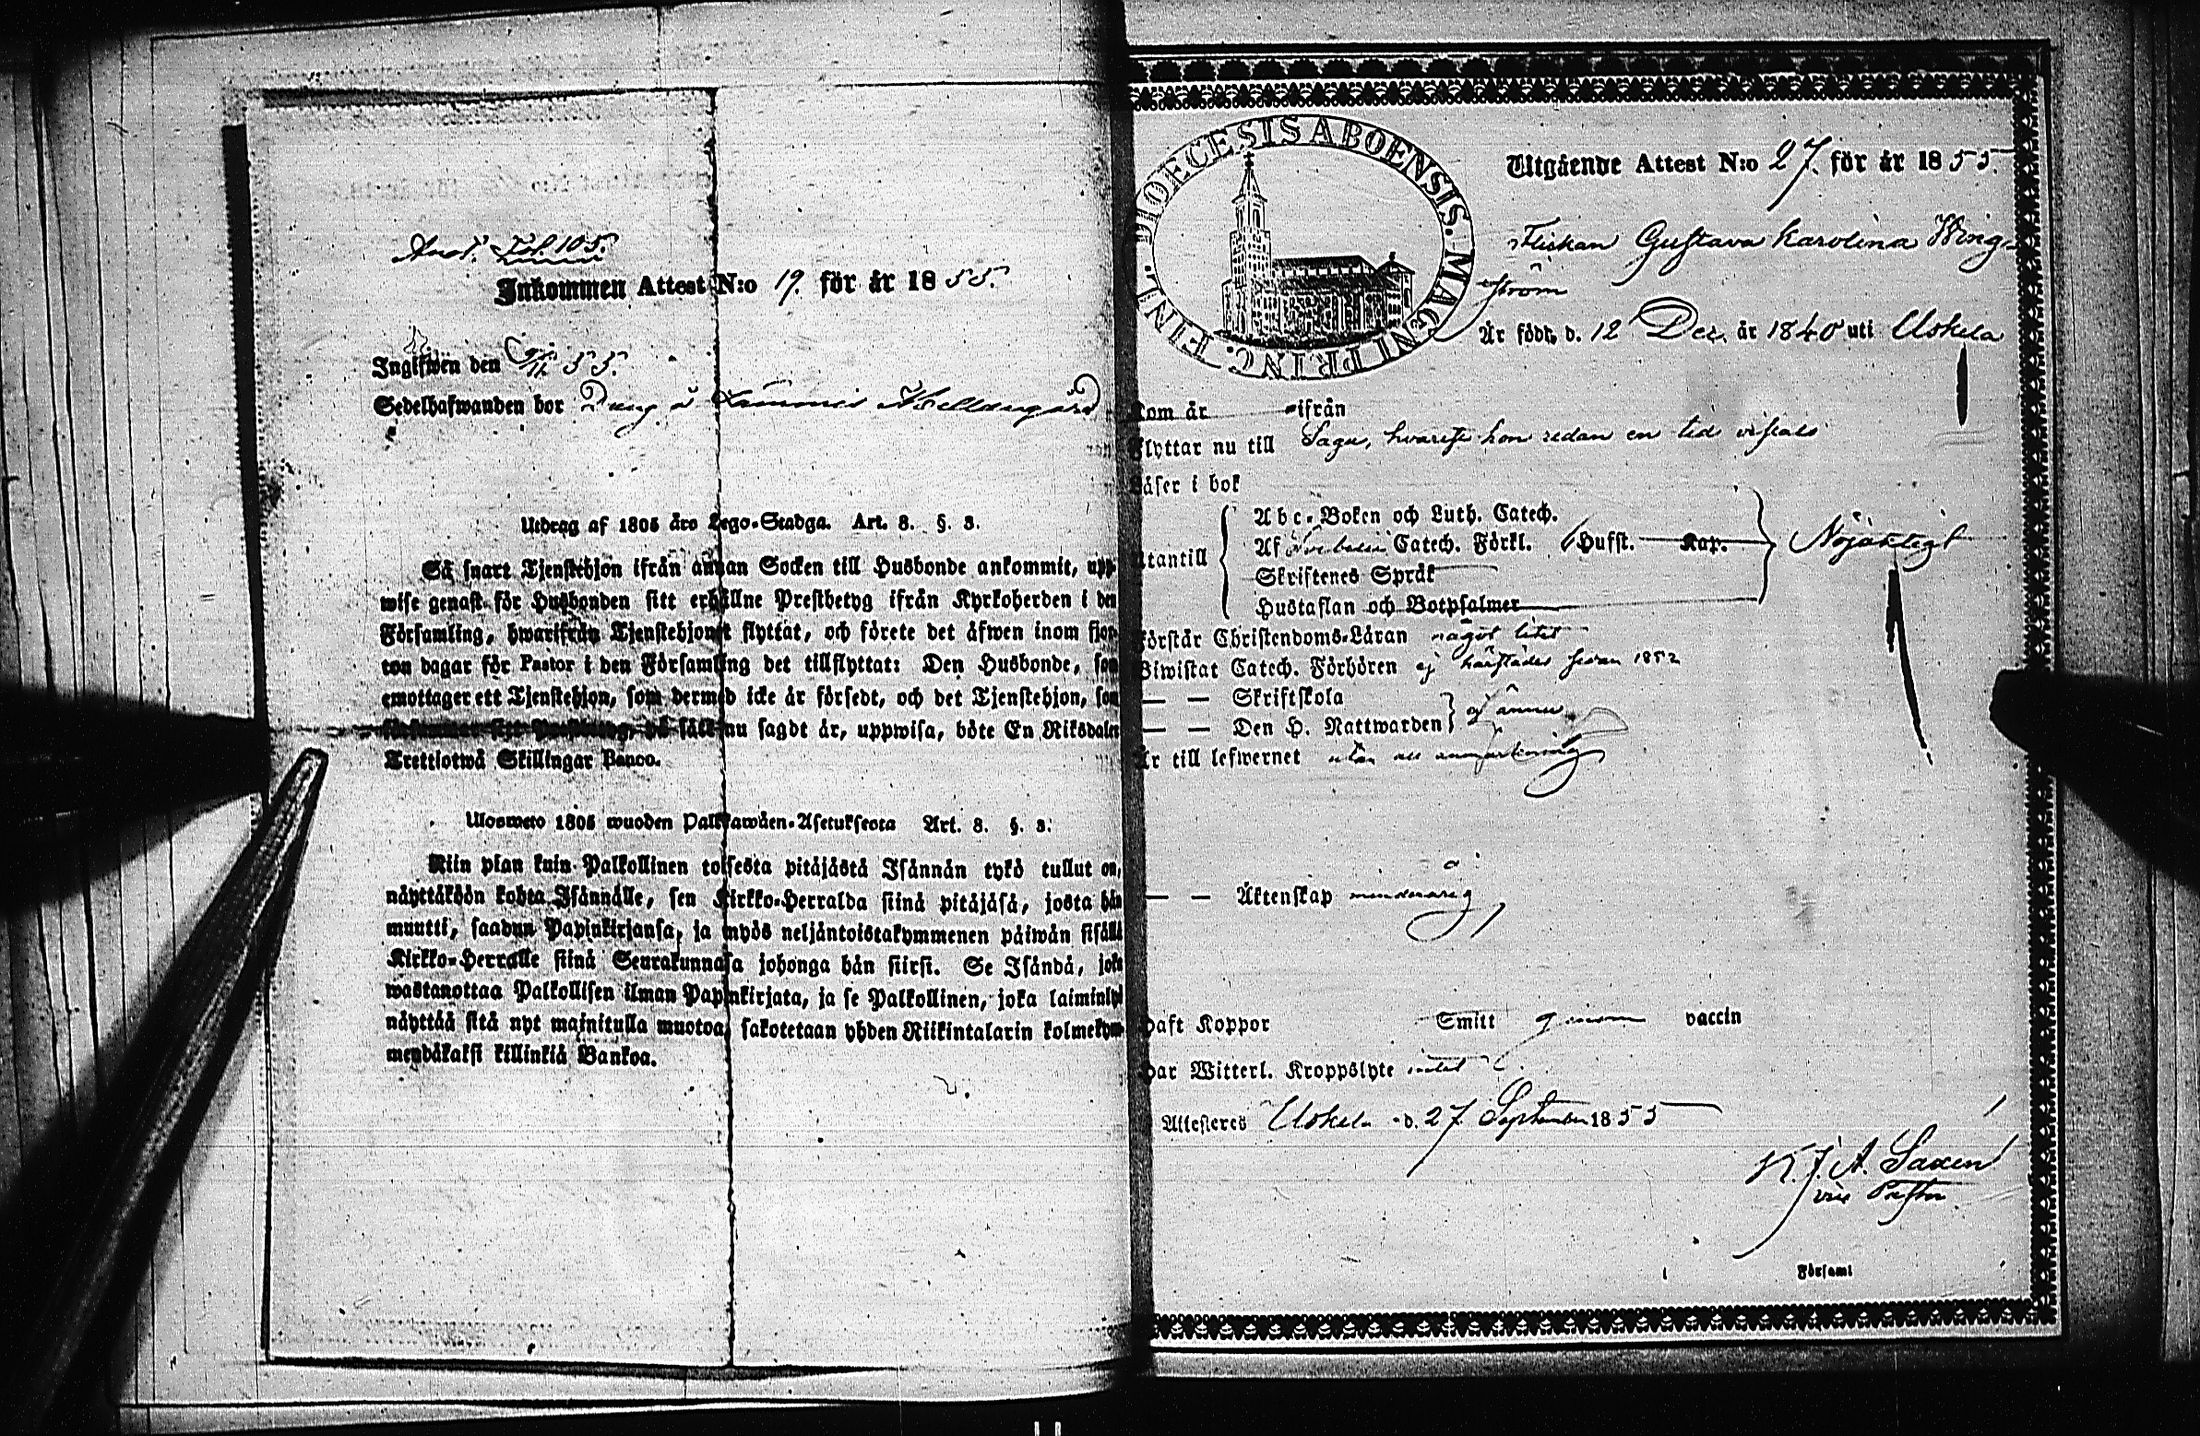 Fol. 105.
Inkommen Attest N:o 19. för år 1855.
Ingifwen den 55.
Sedelhafwanden bor
Utdrag af 1805 års Lego-Stadga. Art. 8. §. 3.
Så snart Tjenstehjon ifrån annan Socken till Husbonde ankommit, upp-
wise genast för Husbonden sitt erhållne Prestbetyg ifrån Kyrkoherden i den
Församling, hwarifrån Tjenstehjonet flyttat, och förete det äfwen inom fjor-
ton dagar för Pastor i den Församling det tillflyttat: Den Husbonde, som
emottager ett Tjenstehjon, som dermed icke är försedt, och det Tjenstehjon, som
på sätt nu sagdt är, uppwisa, böte En Riksdaler
Trettiotwå Skillingar Banco.
Ulosweto 1805 wuoden Palkkawäen-Asetuksesta Art. 8. §. 3.
Niin pian kuin Palkollinen toisesta pitäjästä Isännän tykö tullut on,
näyttäköön kohta Isännälle, sen Kirkko-Herralda siinä pitäjäsä, josta hän
muutti, saadun Papinkirjansa, ja myös neljäntoistakymmenen päiwän sisällä
Kirkko-Herralle siinä Seurakunnasa johonga hän siirsi. Se Isändä, joka
wastanottaa Palkollisen ilman Papinkirjata, ja se Palkollinen, joka laiminlyö
näyttää sitä nyt mainitulla muotoa, sakotetaan yhden Riikintalarin kolmekym-
mendäkaksi killinkiä Bankoa.
DIOECESIS ABOENSIS. MAGNI PRINC. FINL.
Utgående Attest N:o 27. för år 1855.
Flickan Gustava Karolina Wing-
ström
Är född d. 12 Dec. år 1840 uti Uskela
Kom år ifrån
Flyttar nu till Sagu, hwarest hon redan en tid vistats
Läser i bok
Abc-Boken och Luth. Catech.
Utantill Af Catech. Förkl. 6 Hufst. Kap. Nöjaktigt
Skriftenes Språk
Hustaflan och Botpsalmer
Förstår Christendoms-Läran något litet
Biwistat Catech. Förhören ej härstädes sedan 1852
— — Skriftskola
— — Den H. Nattwarden ej ännu
Är till lefwernet utan all anmärkning
— — Äktenskap minderårig
Haft Koppor Smitt genom vaccin
Har Witterl. Kroppslyte intet
Attesteres Uskela d. 27 September 1855
K. J. A. Saxen
vice Pastor
Församl